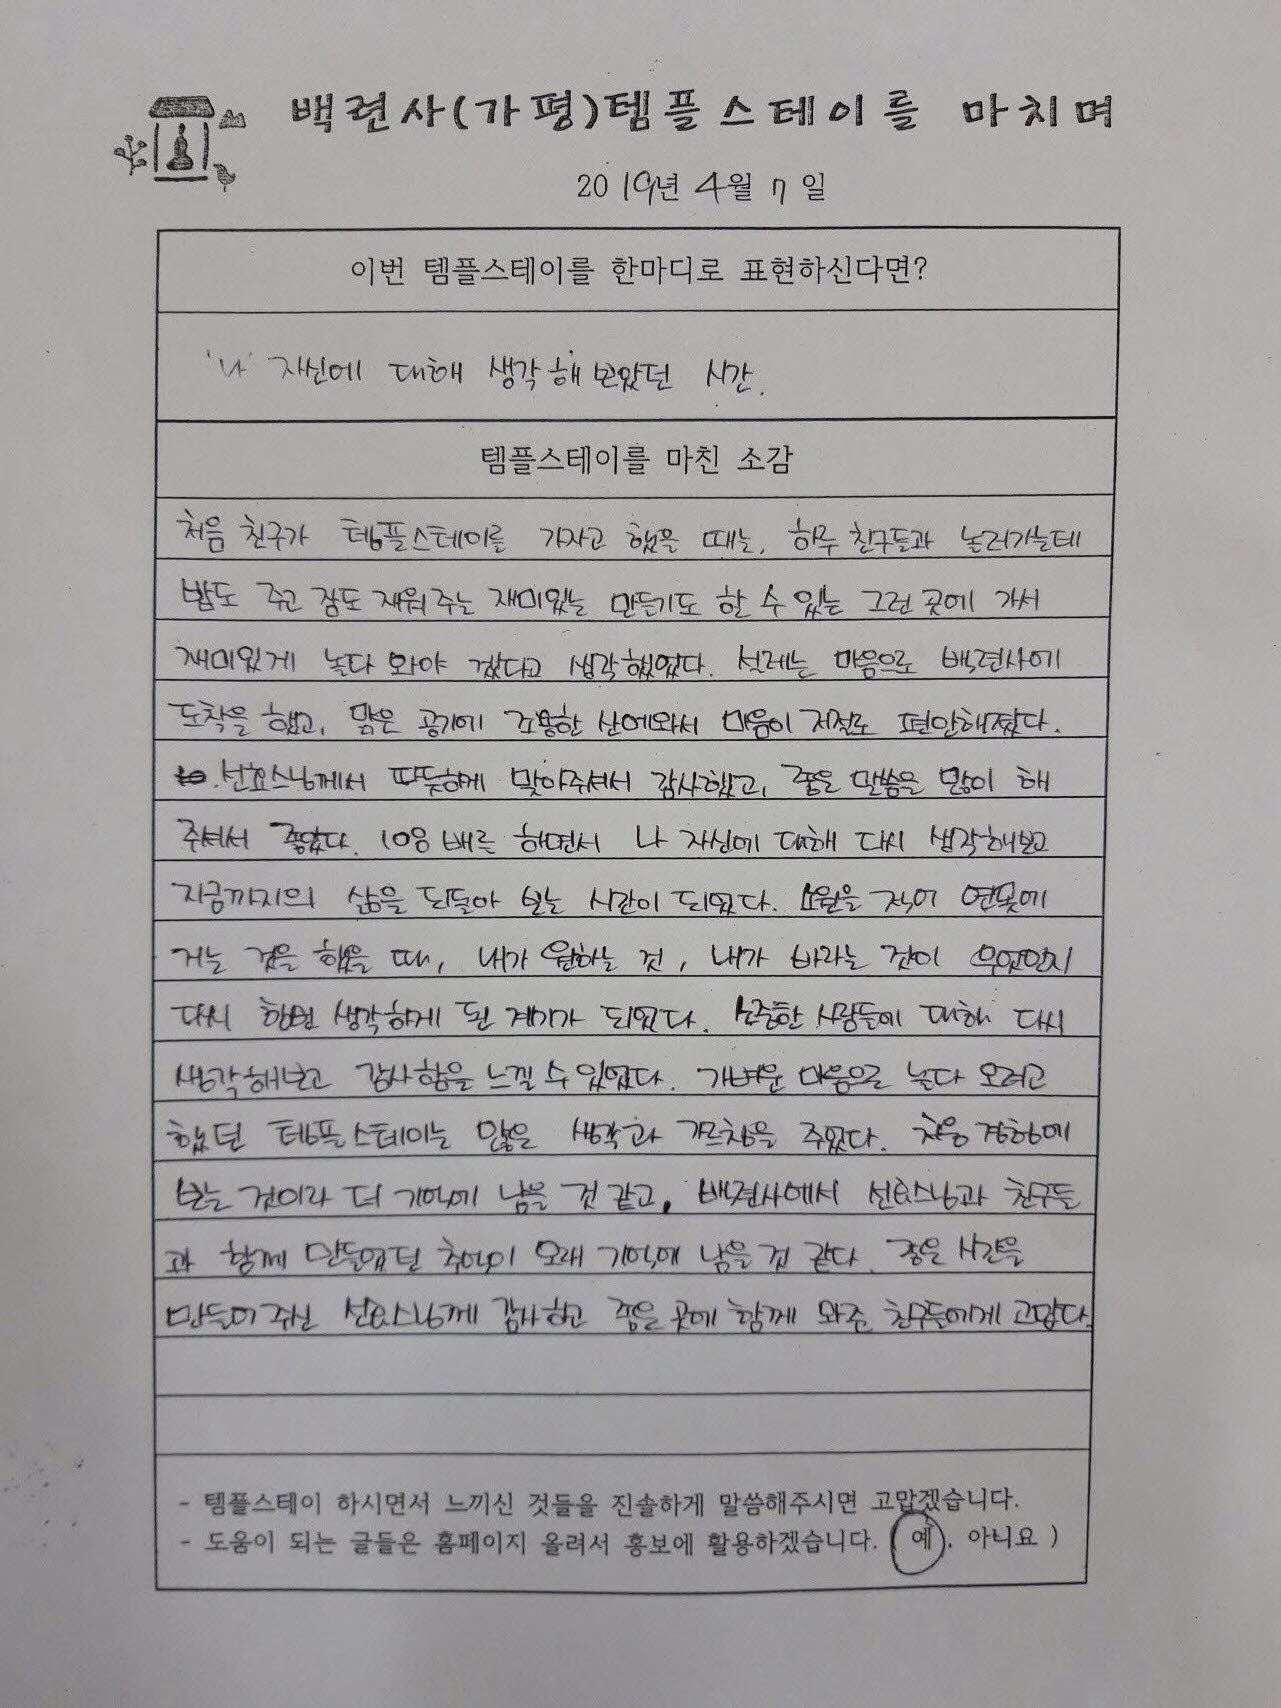 백련사(가평)템플스테이를 마치며
2019년 4월 7일
이번 템플스테이를 한마디로 표현하신다면?
'나' 자신에 대해 생각해 보았던 시간.
템플스테이를 마친 소감
처음 친구가 템플스테이를 가자고 했을 때는, 하루 친구들과 놀러가는데
밥도 주고 잠도 재워 주는 재미있는 만들기도 할 수 있는 그런 곳에 가서
재미있게 놀다 와야 겠다고 생각했었다. 설레는 마음으로 백련사에
도착을 했고, 맑은 공기에 조용한 산에와서 마음이 저절로 편안해졌다.
선효스님께서 따뜻하게 맞아주셔서 감사했고, 좋은 말씀을 많이 해
주셔서 좋았다. 108배를 하면서 나 자신에 대해 다시 생각해보고
지금까지의 삶을 되돌아 보는 시간이 되었다. 소원을 적어 연못에
거는 것을 했을 때, 내가 원하는 것, 내가 바라는 것이 무엇인지
다시 한번 생각하게 된 계기가 되었다. 소중한 사람들에 대해 다시
생각해보고 감사함을 느낄 수 있었다. 가벼운 마음으로 놀다 오려고
했던 템플스테이는 많은 생각과 가르침을 주었다. 처음 경험해
보는 것이라 더 기억에 남을 것 같고, 백련사에서 선효스님과 친구들
과 함께 만들었던 추억이 오래 기억에 남을 것 같다. 좋은 시간을
만들어주신 선효스님께 감사하고 좋은 곳에 함께 와준 친구들에게 고맙다.
- 템플스테이 하시면서 느끼신 것들을 진솔하게 말씀해주시면 고맙겠습니다.
- 도움이 되는 글들은 홈페이지 올려서 홍보에 활용하겠습니다. ( 예 , 아니요 )